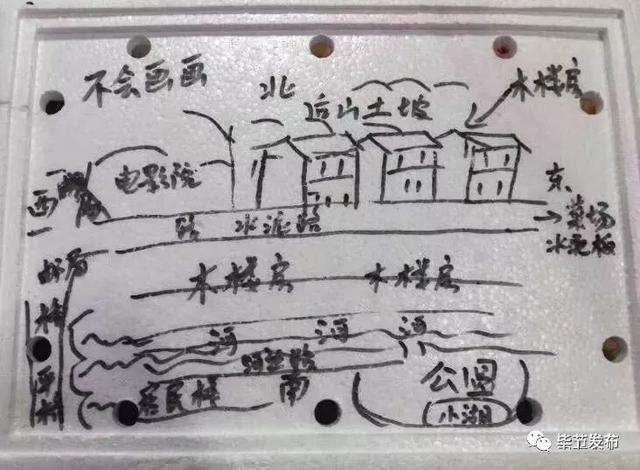 不会画画
北
后山土坡
木楼房
电影院
西
东
路 水泥路
菜场
水泥板
邮局
木楼房 木楼房
桥
河 河 河
河边路
居民楼
南
公园
小湖
毕节发布